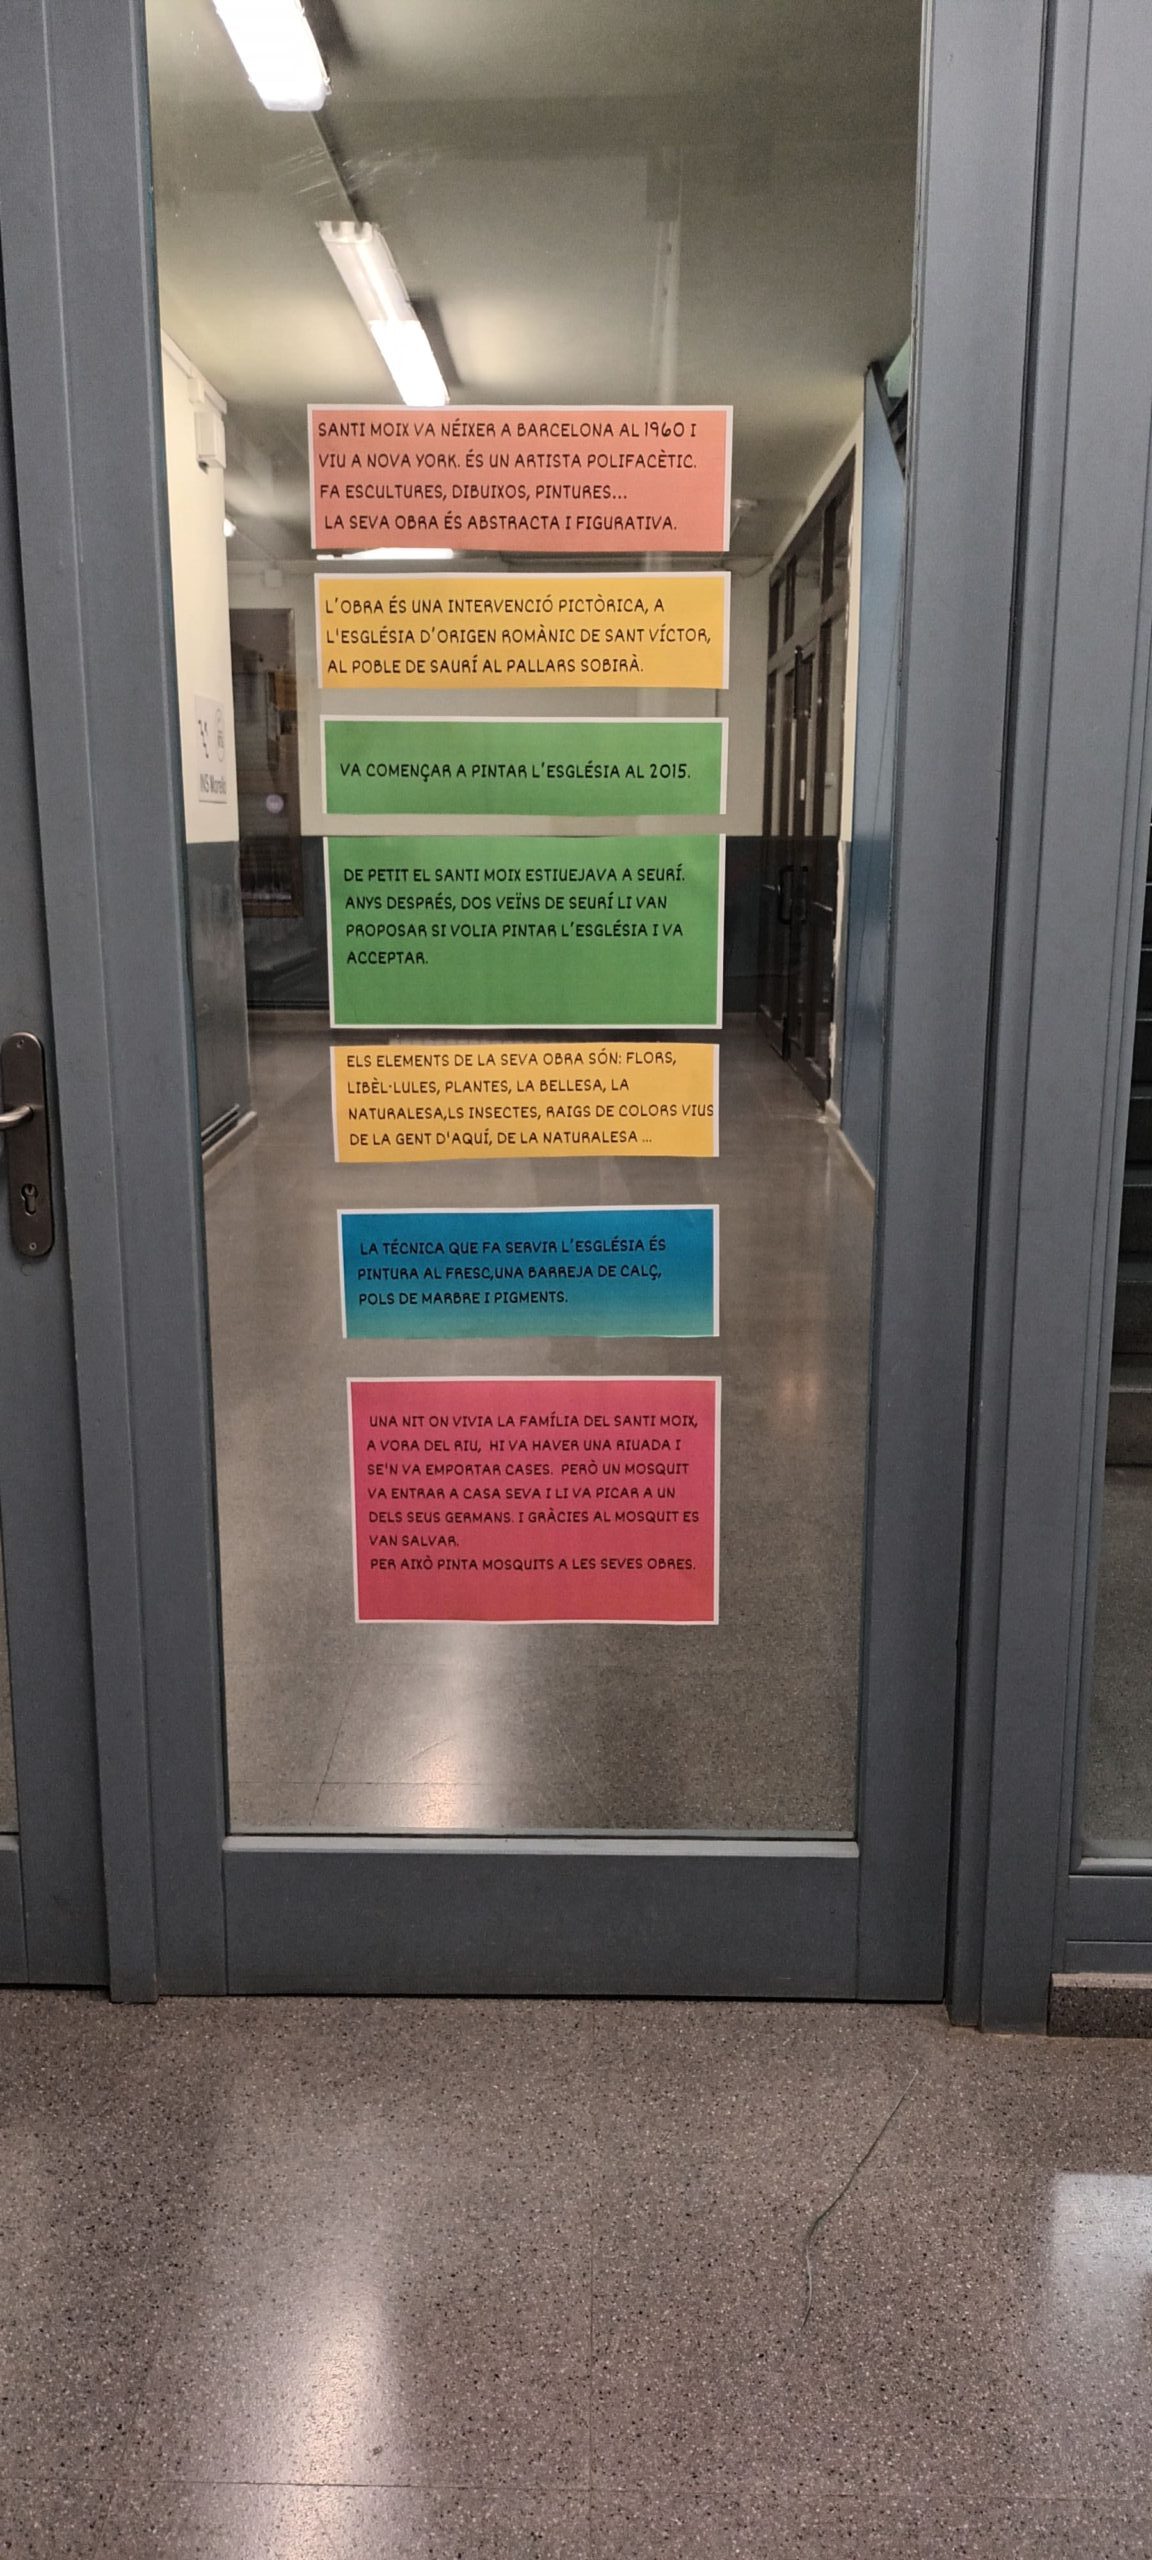 SANTI MOIX VA NÉIXER A BARCELONA AL 1960 I
VIU A NOVA YORK. ÉS UN ARTISTA POLIFACÈTIC.
FA ESCULTURES, DIBUIXOS, PINTURES...
LA SEVA OBRA ÉS ABSTRACTA I FIGURATIVA.
L'OBRA ÉS UNA INTERVENCIÓ PICTÒRICA, A
L'ESGLÉSIA D'ORIGEN ROMÀNIC DE SANT VÍCTOR,
AL POBLE DE SAURÍ AL PALLARS SOBIRÀ.
VA COMENÇAR A PINTAR L'ESGLÉSIA AL 2015.
DE PETIT EL SANTI MOIX ESTIUEJAVA A SEURÍ.
ANYS DESPRÉS, DOS VEÏNS DE SEURÍ LI VAN
PROPOSAR SI VOLIA PINTAR L'ESGLÉSIA I VA
ACCEPTAR.
ELS ELEMENTS DE LA SEVA OBRA SÓN: FLORS,
LIBÈL·LULES, PLANTES, LA BELLESA, LA
NATURALESA,LS INSECTES, RAIGS DE COLORS VIUS
DE LA GENT D'AQUÍ, DE LA NATURALESA ...
LA TÉCNICA QUE FA SERVIR L'ESGLÉSIA ÉS
PINTURA AL FRESC,UNA BARREJA DE CALÇ,
POLS DE MARBRE I PIGMENTS.
UNA NIT ON VIVIA LA FAMÍLIA DEL SANTI MOIX,
A VORA DEL RIU, HI VA HAVER UNA RIUADA I
SE'N VA EMPORTAR CASES. PERÒ UN MOSQUIT
VA ENTRAR A CASA SEVA I LI VA PICAR A UN
DELS SEUS GERMANS. I GRÀCIES AL MOSQUIT ES
VAN SALVAR.
PER AIXÒ PINTA MOSQUITS A LES SEVES OBRES.
INS